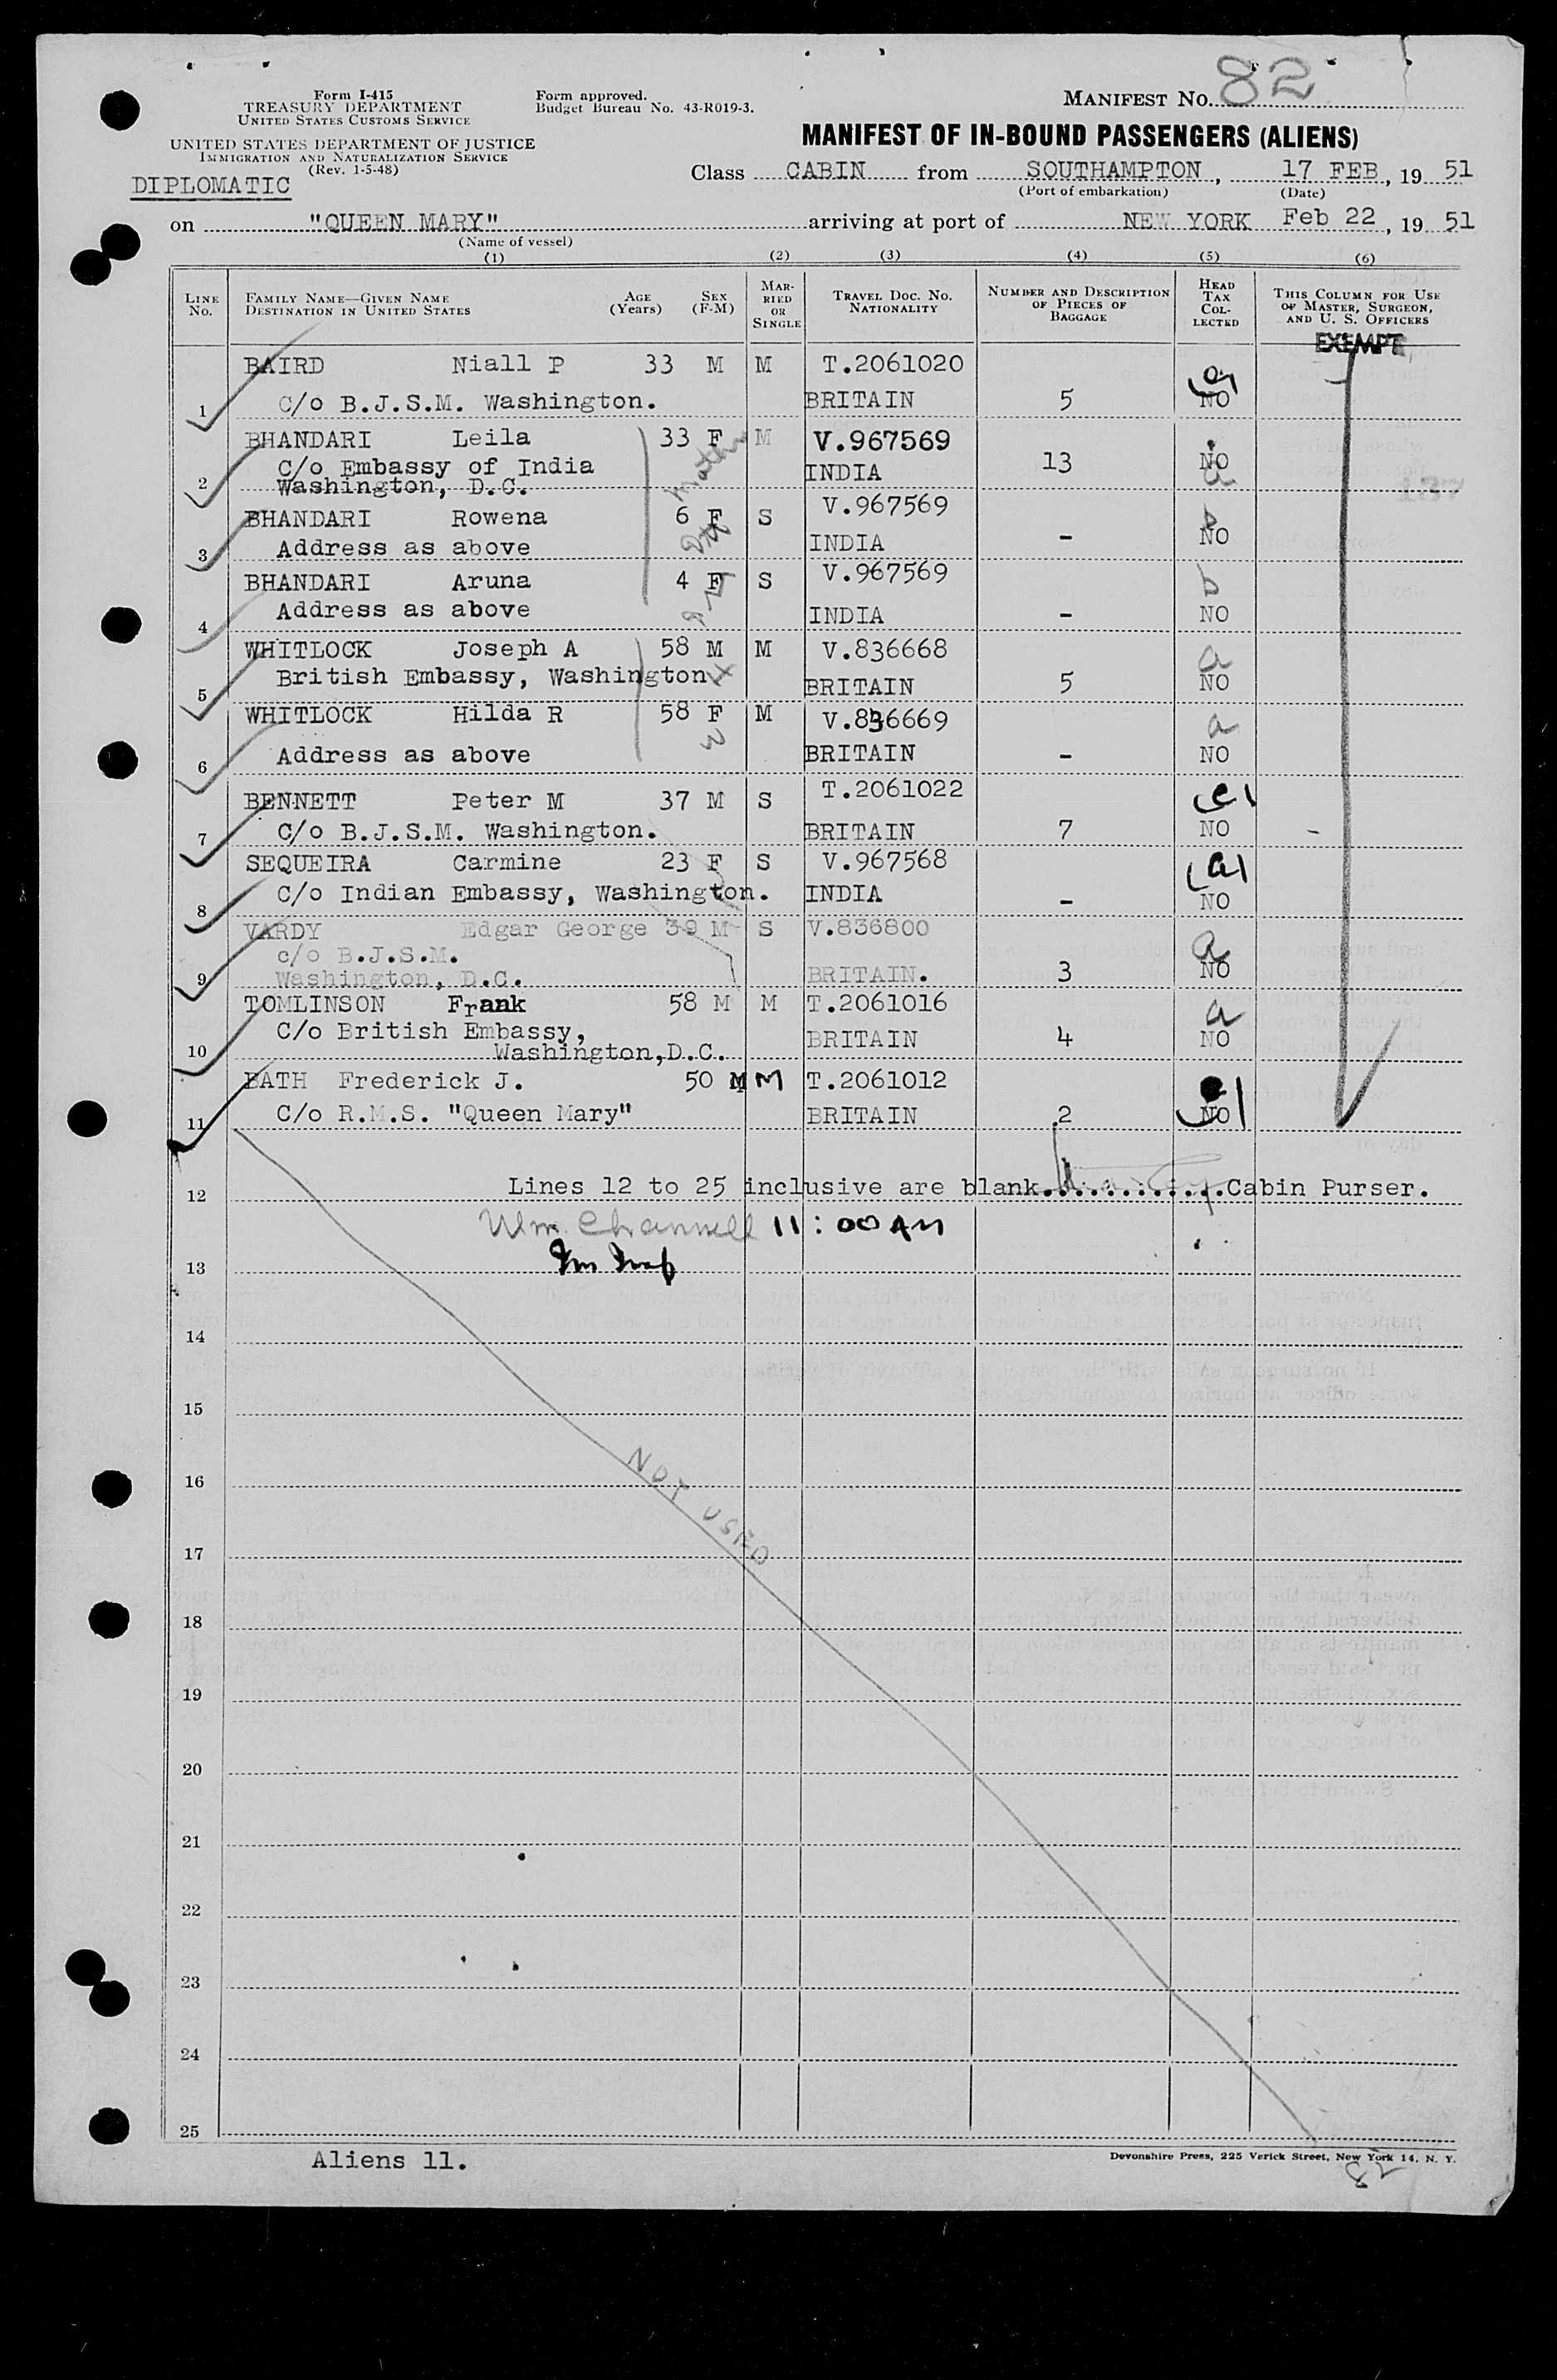 82
Form I-415
TREASURY DEPARTMENT
UNITED STATES CUSTOMS SERVICE
UNITED STATES DEPARTMENT OF JUSTICE
IMMIGRATION AND NATURALIZATION SERVICE
(Rev. 1-5-48)
DIPLOMATIC
Form approved.
Budget Bureau No. 43-R019-3.
MANIFEST No.
MANIFEST OF IN-BOUND PASSENGERS (ALIENS)
Class CABIN from SOUTHAMPTON, 17 FEB, 19 51
(Port of embarkation) (Date)
on "QUEEN MARY" arriving at port of NEW YORK Feb 22, 19 51
(Name of vessel)
(1) (2) (3) (4) (5) (6)
LINE No. FAMILY NAME—GIVEN NAME DESTINATION IN UNITED STATES AGE (Years) SEX (F-M) MARRIED OR SINGLE TRAVEL DOC. NO. NATIONALITY NUMBER AND DESCRIPTION OF PIECES OF BAGGAGE HEAD TAX COLLECTED THIS COLUMN FOR USE OF MASTER, SURGEON, AND U. S. OFFICERS
EXEMPT
BAIRD Niall P 33 M M T.2061020 a
1 C/o B.J.S.M. Washington. BRITAIN 5 NO
BHANDARI Leila 33 F M V.967569
C/o Embassy of India INDIA 13 NO
2 Washington, D.C. a
BHANDARI Rowena 6 F S V.967569 b
3 Address as above INDIA - NO
BHANDARI Aruna 4 F S V.967569 b
4 Address as above INDIA - NO
WHITLOCK Joseph A 58 M M V.836668 a
5 British Embassy, Washington BRITAIN 5 NO
WHITLOCK Hilda R 58 F M V.836669 a
6 Address as above BRITAIN - NO
BENNETT Peter M 37 M S T.2061022
7 C/o B.J.S.M. Washington. BRITAIN 7 NO -
SEQUEIRA Carmine 23 F S V.967568 a
8 C/o Indian Embassy, Washington. INDIA - NO
VARDY Edgar George 39 M S V.836800 a
c/o B.J.S.M.
9 Washington, D.C. BRITAIN. 3 NO
TOMLINSON Frank 58 M M T.2061016 a
C/o British Embassy, BRITAIN 4 NO
10 Washington,D.C.
BATH Frederick J. 50 M M T.2061012
11 C/o R.M.S. "Queen Mary" BRITAIN 2 NO
12 Lines 12 to 25 inclusive are blank............Cabin Purser.
Wm Channell 11:00 AM
13
14
15
16
NOT USED
17
18
19
20
21
22
23
24
25
Aliens 11.
Devonshire Press, 225 Verick Street, New York 14, N. Y.
82